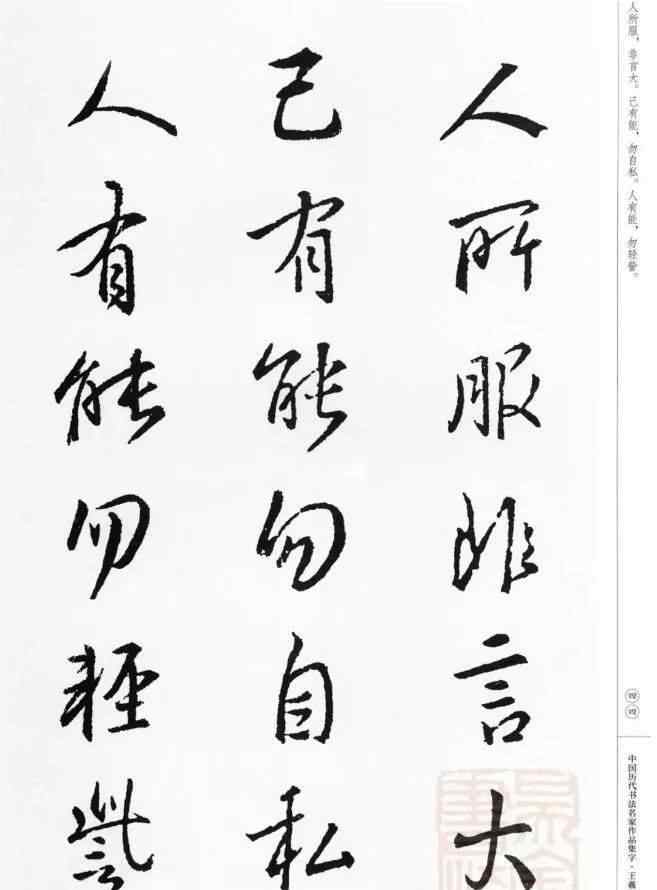 人所服，非言大。己有能，勿自私。人有能，勿轻訾。
人所服非言大
己有能勿自私
人有能勿輕訾
四四
中国历代书法名家作品集字·王羲